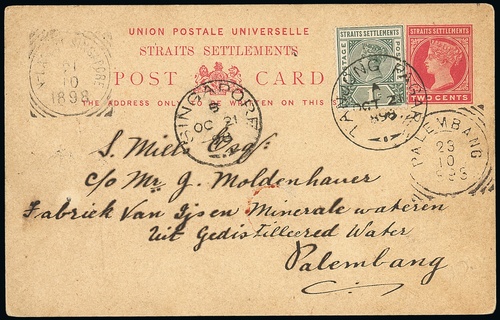 UNION POSTALE UNIVERSELLE
STRAITS SETTLEMENTS
POST CARD
THE ADDRESS ONLY TO BE WRITTEN ON THIS
STRAITS SETTLEMENTS
POSTAGE
STRAITS SETTLEMENTS
TWO CENTS
10
1898
SINGAPORE
S
OC 21
98
TANJONG PAGAR
OCT 2
898
PALEMBANG
23
10
S. Mills Esq:
c/o Mr. G. Moldenhauer
Fabriek Van Ijsen Minerale wateren
Uit Gedistilleered Water
Palembang